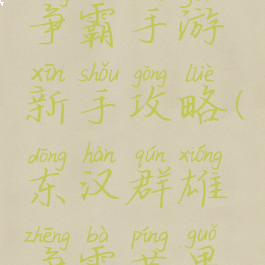 争霸手游
xīn shǒu gōng lüè
新手攻略(
dōng hàn qún xióng
东汉群雄
zhēng bà píng guǒ
争霸苹果